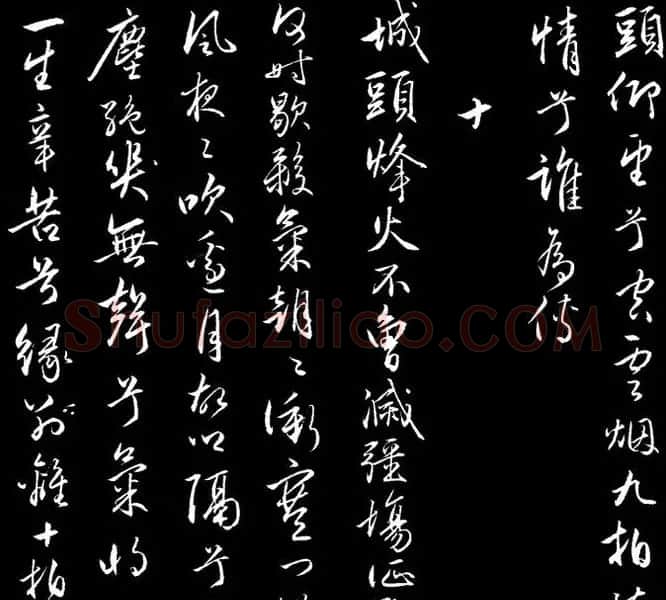 頭仰望兮空雲烟九拍
情兮誰為傳
十
城頭烽火不曾滅疆場征
何時歇殺氣朝々衝塞門
風夜々吹邊月故鄉隔兮
塵絕哭無聲兮氣將
一生辛苦兮緣別離十拍
Shufaziliao.COM